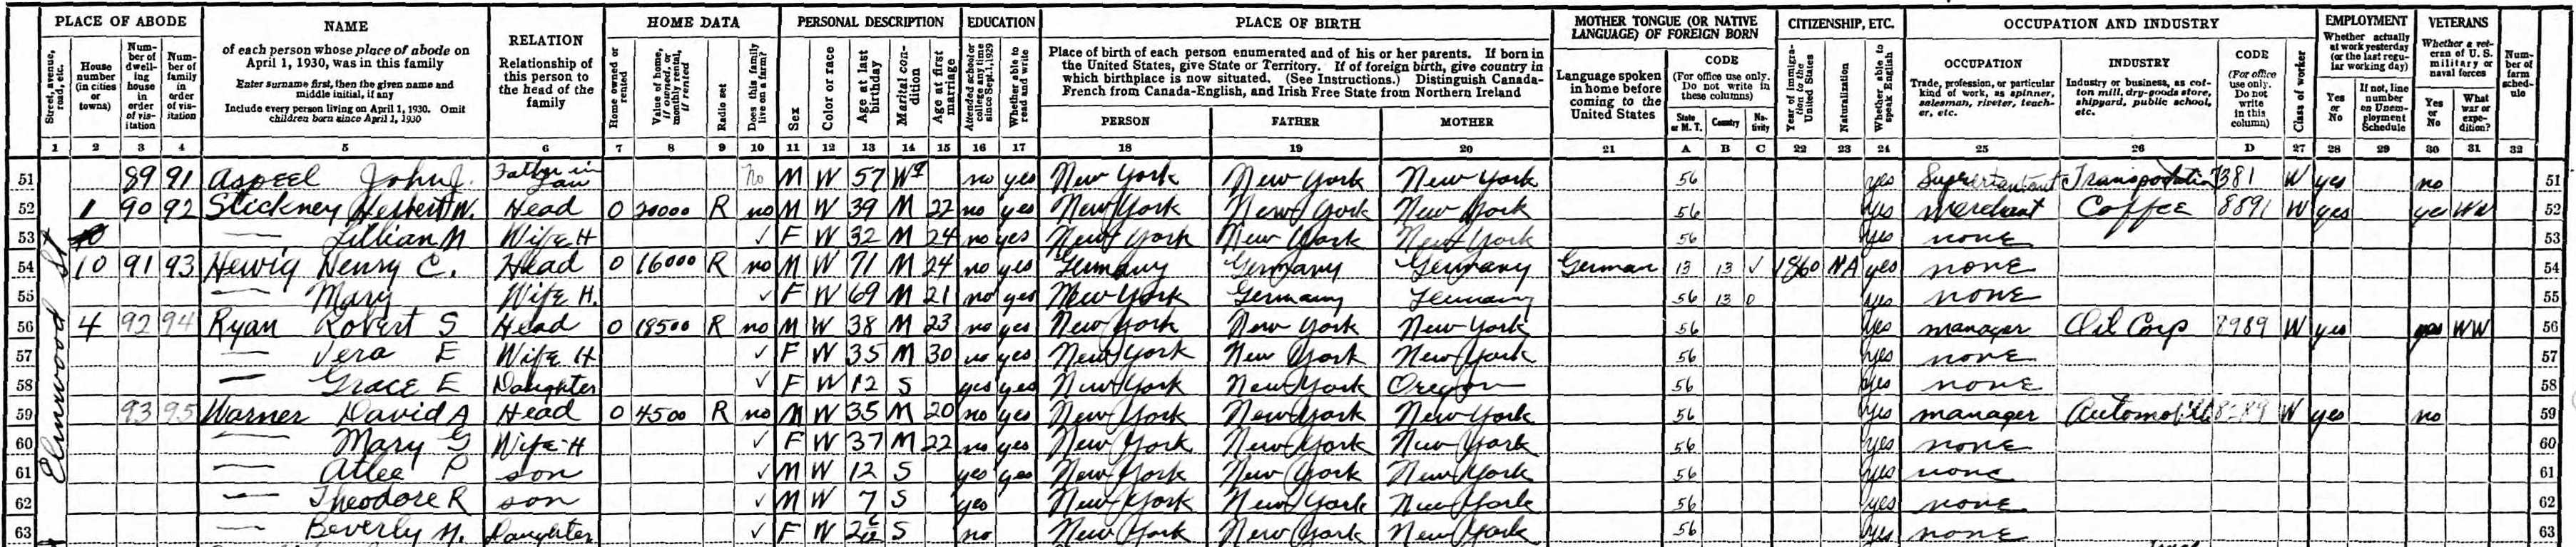 PLACE OF ABODE NAME RELATION HOME DATA PERSONAL DESCRIPTION EDUCATION PLACE OF BIRTH MOTHER TONGUE (OR NATIVE LANGUAGE) OF FOREIGN BORN CITIZENSHIP, ETC. OCCUPATION AND INDUSTRY EMPLOYMENT VETERANS
Street, avenue, road, etc.
House number (in cities or towns)
Num-ber of dwell-ing house in order of vis-itation
Num-ber of family in order of vis-itation
of each person whose place of abode on April 1, 1930, was in this family
Enter surname first, then the given name and middle initial, if any
Include every person living on April 1, 1930. Omit children born since April 1, 1930
Relationship of this person to the head of the family
Home owned or rented
Value of home, if owned, or monthly rental, if rented
Radio set
Does this family live on a farm?
Sex
Color or race
Age at last birthday
Marital con-dition
Age at first marriage
Attended school or college any time since Sept. 1, 1929
Whether able to read and write
Place of birth of each person enumerated and of his or her parents. If born in the United States, give State or Territory. If of foreign birth, give country in which birthplace is now situated. (See Instructions.) Distinguish Canada-French from Canada-English, and Irish Free State from Northern Ireland
PERSON FATHER MOTHER
Language spoken in home before coming to the United States
CODE (For office use only. Do not write in these columns)
State or M. T. Country Na-tivity
Year of immigra-tion to the United States
Naturalization
Whether able to speak English
OCCUPATION
Trade, profession, or particular kind of work, as spinner, salesman, riveter, teach-er, etc.
INDUSTRY
Industry or business, as cot-ton mill, dry-goods store, shipyard, public school, etc.
CODE (For office use only. Do not write in this column)
Class of worker
Whether actually at work yesterday (or the last regu-lar working day)
Yes or No
If not, line number on Unem-ployment Schedule
Whether a vet-eran of U. S. military or naval forces
Yes or No
What war or expe-dition?
Num-ber of farm sched-ule
1 2 3 4 5 6 7 8 9 10 11 12 13 14 15 16 17 18 19 20 21 A B C 22 23 24 25 26 D 27 28 29 30 31 32
Elmwood St
51 89 91 Aspeel John J. Father in law no M W 57 Wd no yes New York New York New York 56 yes Transpotation 7381 W yes no 51
52 1 90 92 Stickney Herbert W. Head O 20000 R no M W 39 M 22 no yes New York New York New York 56 yes merchant Coffee 8891 W yes yes WW 52
53 — Lillian M Wife H ✓ F W 32 M 24 no yes New York New York New York 56 yes none 53
54 10 91 93 Hewig Henry C. Head O 16000 R no M W 71 M 24 no yes Germany Germany Germany German 13 13 ✓ 1860 NA yes none 54
55 — Mary Wife H. ✓ F W 69 M 21 no yes New York Germany Germany 56 13 0 yes none 55
56 4 92 94 Ryan Robert S Head O 18500 R no M W 38 M 23 no yes New York New York New York 56 yes manager Oil Corp 8989 W yes yes WW 56
57 — Vera E Wife H ✓ F W 35 M 30 no yes New York New York New York 56 yes none 57
58 — Grace E Daughter ✓ F W 12 S yes yes New York New York Oregon 56 yes none 58
59 93 95 Warner David A Head O 4500 R no M W 35 M 20 no yes New York New York New York 56 yes manager Automobile 8289 W yes no 59
60 — Mary G Wife H ✓ F W 37 M 22 no yes New York New York New York 56 yes none 60
61 — Atlee P son ✓ M W 12 S yes yes New York New York New York 56 yes none 61
62 — Theodore R son ✓ M W 7 S yes New York New York New York 56 yes none 62
63 — Beverly M. Daughter ✓ F W 2 6/12 S no New York New York New York 56 yes none 63